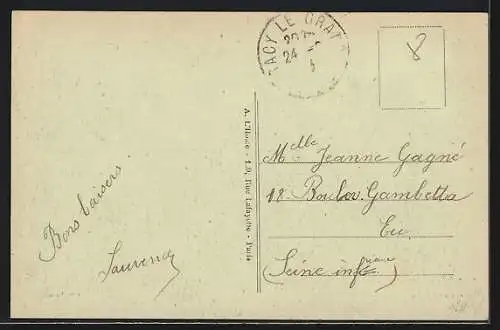 RACY LE GRAY
24
8
A. L'Hoste - 1.9, Rue Lafayette - Paris
Bons baisers
Laurence
Melle Jeanne Gagné
18 Boulov. Gambetta
Eu
(Seine inférieure)